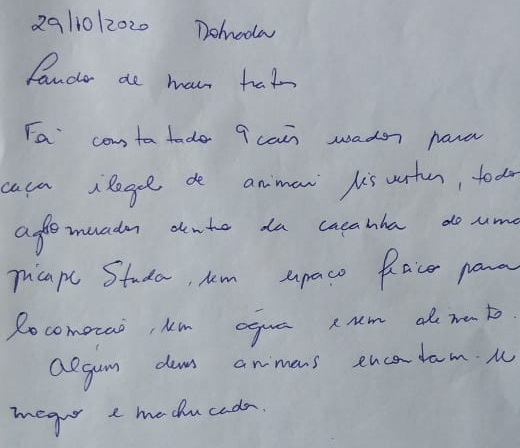 29/10/2020 Dobrada
Laudo de maus tratos
Foi constatado 9 cães usados para
caça ilegal de animais silvestres, todos
aglomerados dentro da caçamba de uma
picape Strada, sem espaço físico para
locomoção, sem água e sem alimento.
Alguns desses animais encontam-se
magro e machucados.